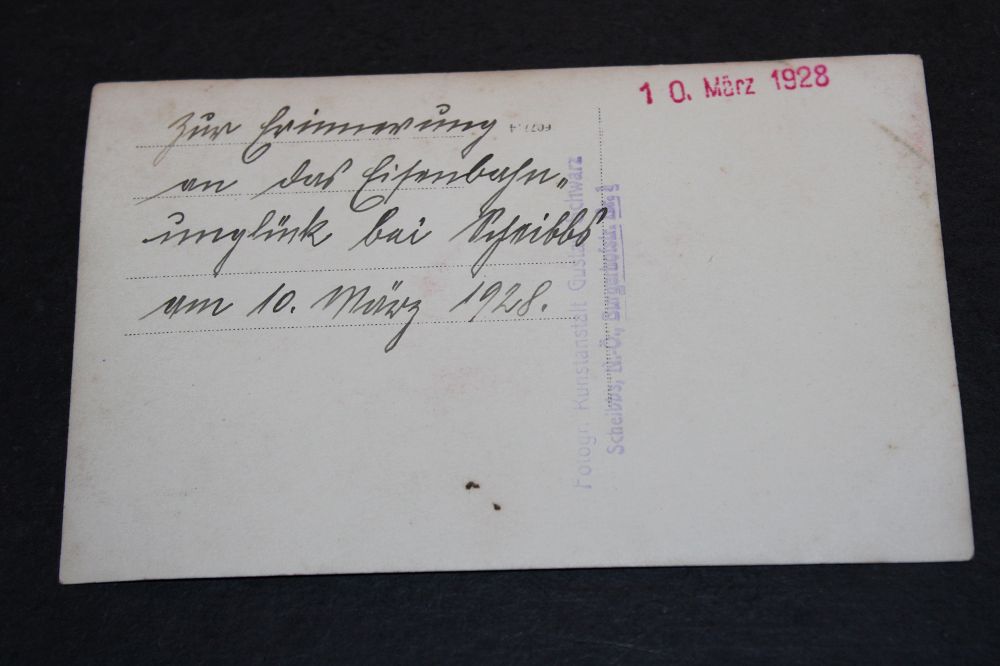 10. März 1928
Zur Erinnerung
an das Eisenbahn„
unglück bei Scheibbs
am 10. März 1928.
Fotogr. Kunstanstalt Gustav Schwarz
Scheibbs, N.-Ö.,